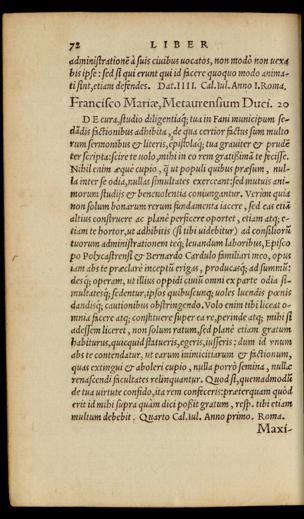 72 LIBER
administrationē à suis ciuibus uocatos, non modò non uexa
bis ipse: sed si qui erunt qui id facere quoquo modo anima-
ti sint, etiam defendes. Dat. IIII. Cal. Iul. Anno I. Roma.
Francisco Mariæ, Metaurensium Duci. 20
DE cura, studio diligentiaq; tua in Fani municipum se-
dādis factionibus adhibita, de qua certior factus sum multo
rum sermonibus & literis, epistolaq; tua grauiter & prudē
ter scripta: scire te uolo, mihi in eo rem gratissimā te fecisse.
Nihil enim æquè cupio, q̃ ut populi quibus præsum, nul-
la inter se odia, nullas simultates exerceant: sed mutuis ani-
morum studijs & beneuolentia coniungantur. Verùm quia
non solum bonarum rerum fundamenta iacere, sed eas etiā
altius construere ac planè perficere oportet, etiam atq; e-
tiam te hortor, ut adhibitis (si tibi uidebitur) ad consiliorū
tuorum administrationem teq; leuandum laboribus, Episco
po Polycastrensi & Bernardo Cardulo familiari meo, opus
iam abs te præclarè inceptū erigas, producasq; ad summū:
desq; operam, ut illius oppidi ciuiū omni ex parte odia si-
multatesq; sedentur, ipsos quibuscunq; uoles luendis pœnis
dandisq; cautionibus obstringendo. Volo enim tibi liceat o-
mnia facere atq; constituere super ea re, perinde atq; mihi si
adessem liceret, non solum ratum, sed planè etiam gratum
habiturus, quicquid statueris, egeris, iusseris: dum id unum
abs te contendatur, ut earum inimicitiarum & factionum,
quas extingui & aboleri cupio, nulla porrò semina, nullæ
renascendi facultates relinquantur. Quod si, quemadmodū
de tua uirtute confido, ita rem confeceris: præterquam quòd
erit id mihi supra quàm dici possit gratum, resp. tibi etiam
multum debebit. Quarto Cal. iul. Anno primo. Roma.
Maxi-